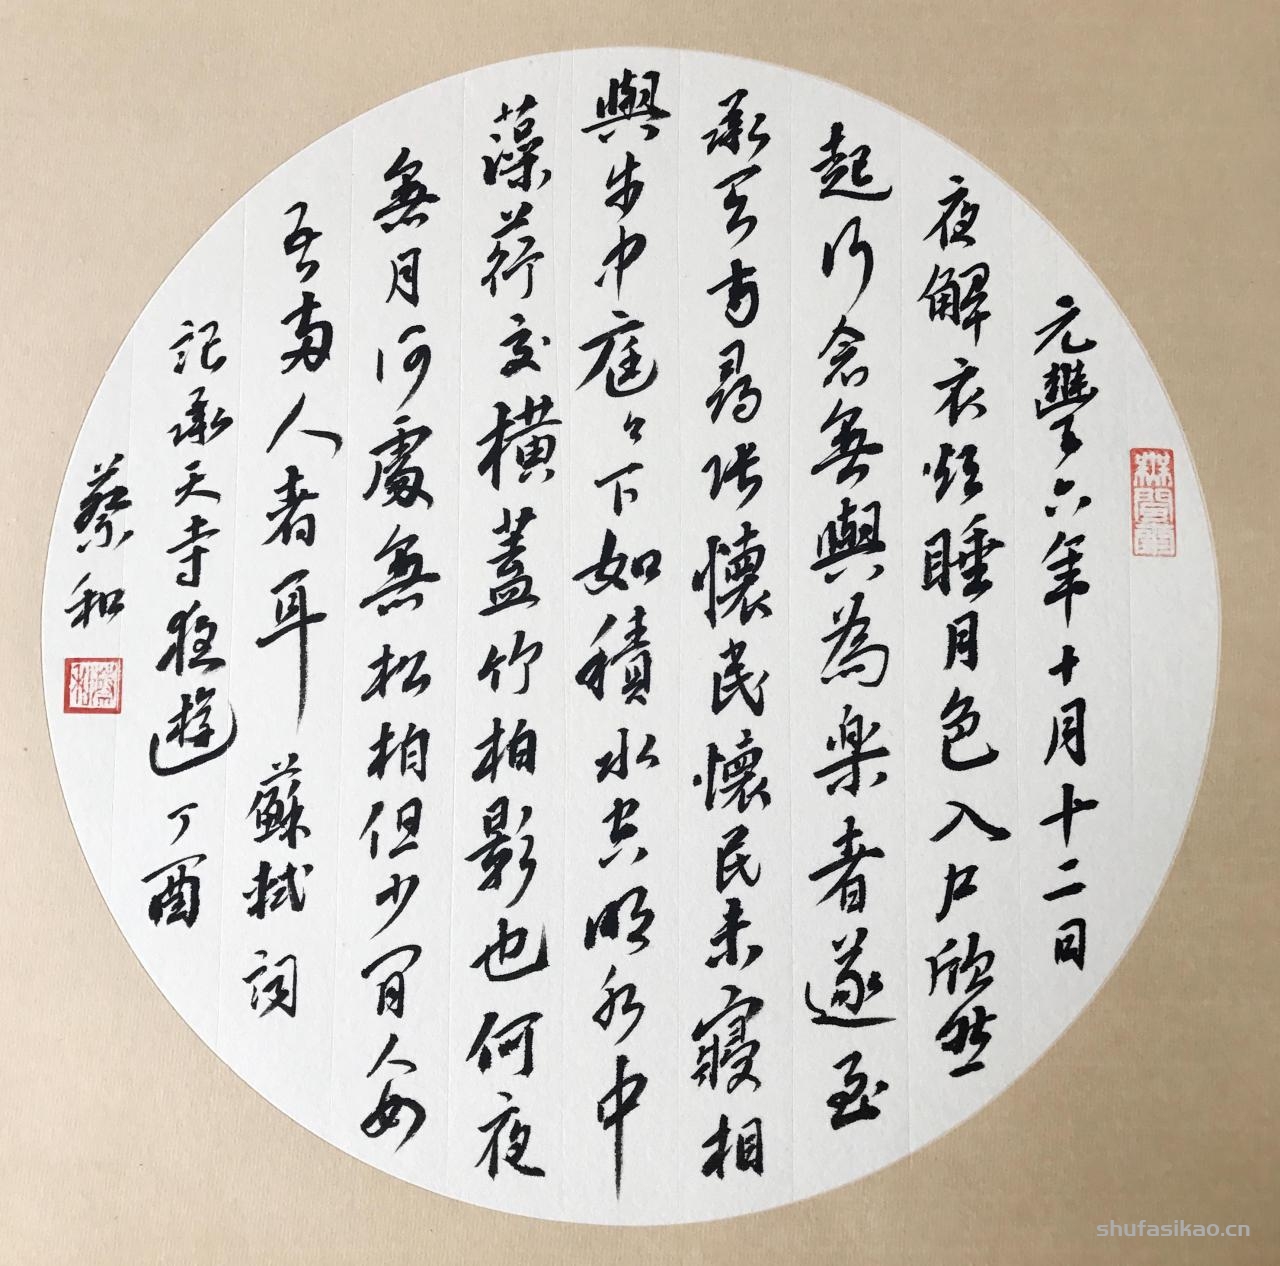 元豐六年十月十二日
夜解衣欲睡月色入戶欣然
起行念無與為楽者遂至
承天寺尋張懷民懷民未寢相
與步中庭々下如積水空明水中
藻荇交橫蓋竹柏影也何夜
無月何處無松柏但少閒人如
吾兩人者耳 蘇軾詞
記承天寺夜遊 丁酉
蔡和
蔡和
shufasikao.cn